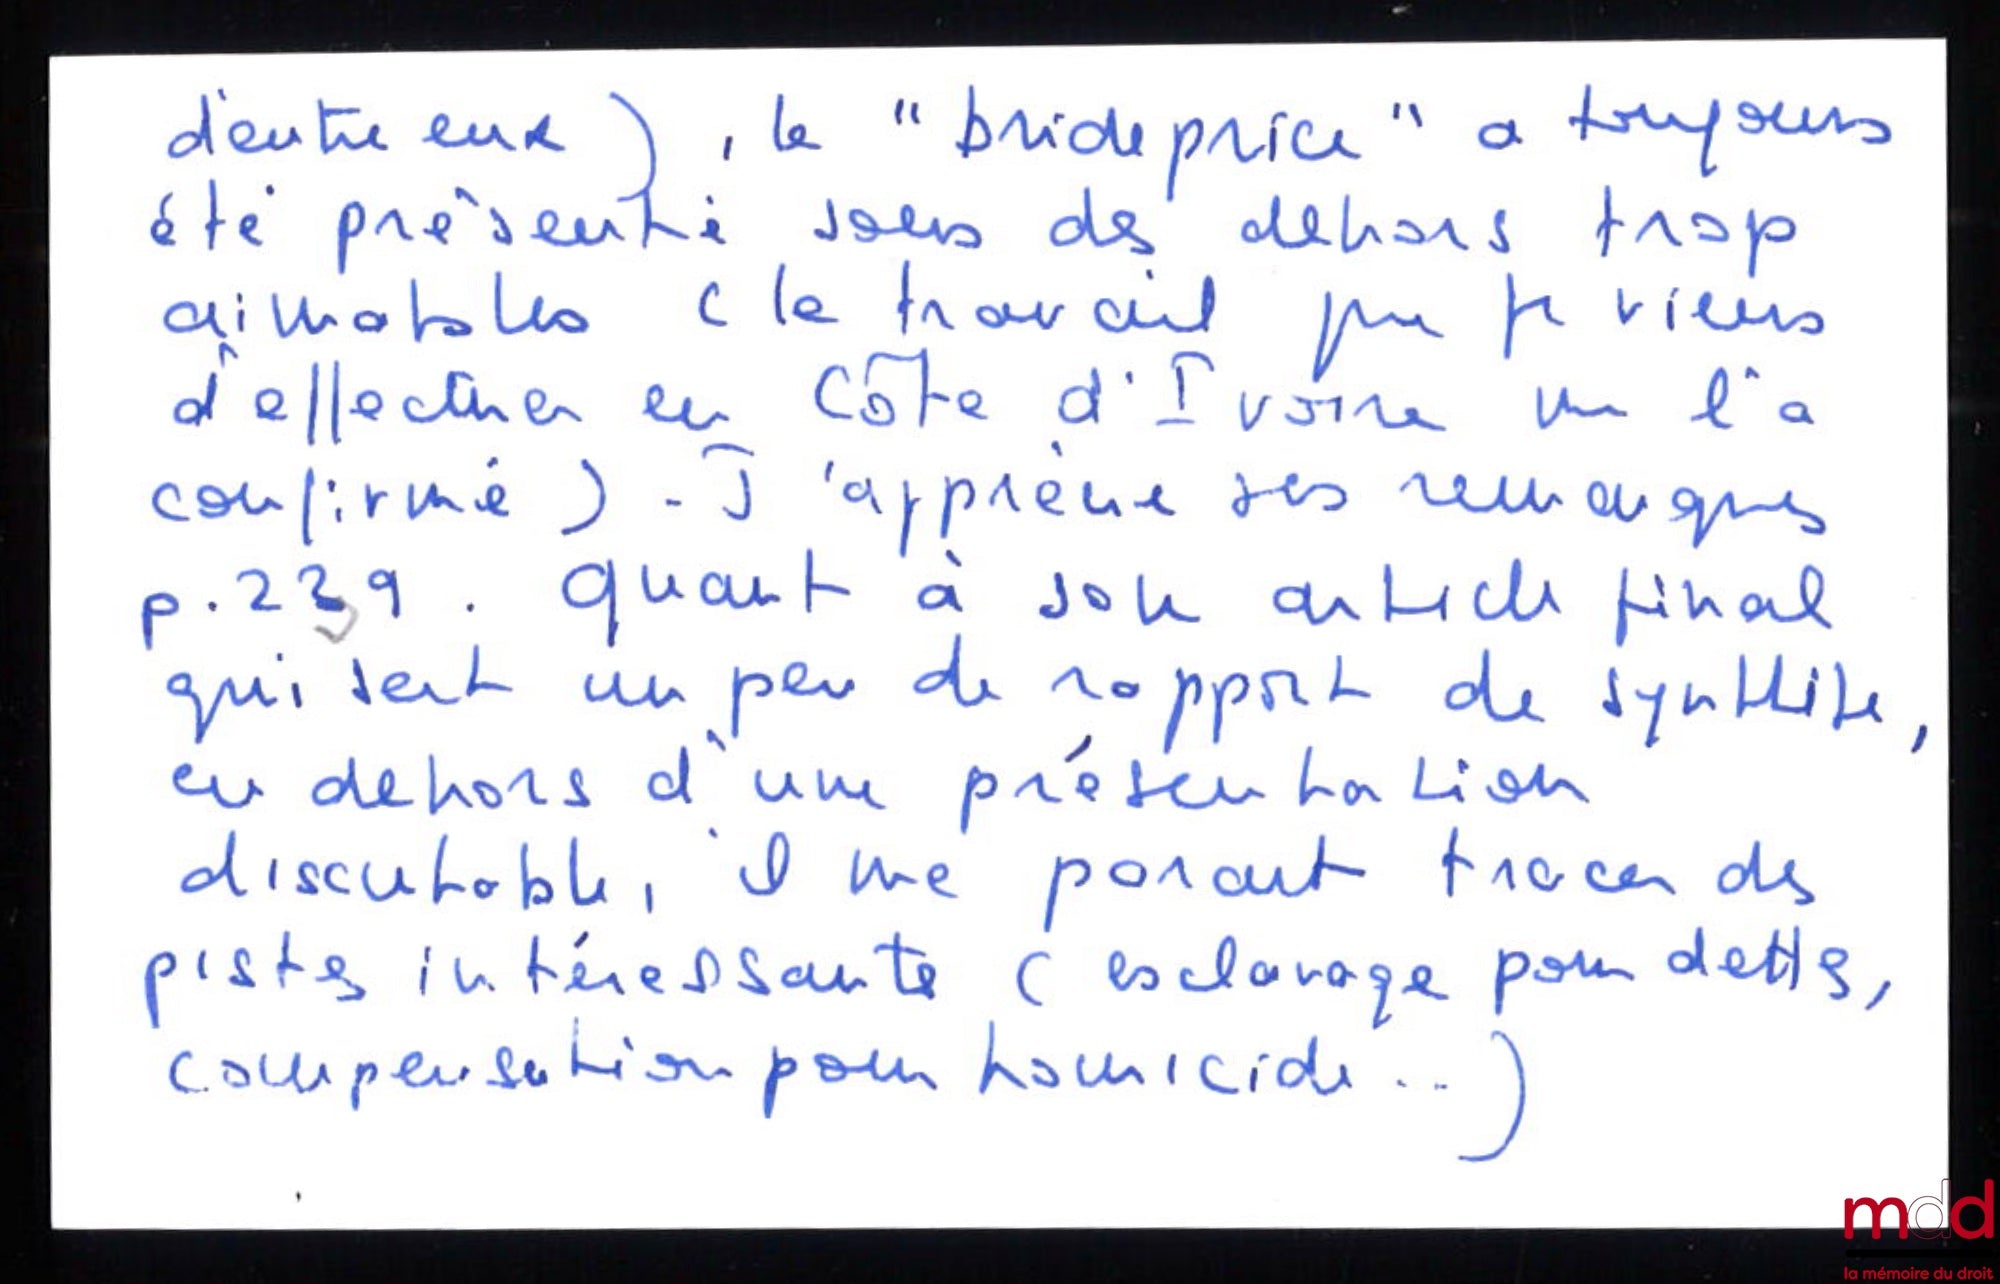 d'entre eux), le "brideprice" a toujours
été présenté sous des dehors trop
aimables (le travail que je viens
d'effectuer en Côte d'Ivoire me l'a
confirmé). J'apprécie ses remarques
p. 239. Quant à son article final
qui sert un peu de rapport de synthèse,
en dehors d'une présentation
discutable, il me parait tracer des
pistes intéressantes (esclavage pour dettes,
compensation pour homicide...)
mdd
la mémoire du droit